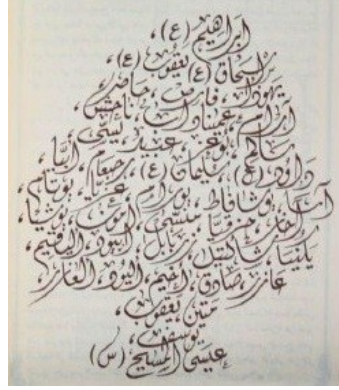 ابراهیم (ع)،
اسحاق (ع)، یعقوب (ع)،
یهودا، فارص، حاصر،
آرام، عمیناداب، ناحشن،
سالم، بوعز، عبید، یسّی،
داوود (ع)، سلیمان (ع)، رحبعام، ابیّا،
آسا، یوشافاط، یورام، عزیا، یوتام،
آحاز، حزقیا، منسّی، آمون، یوشیا،
یکنیا، شالتیئل، زربابل، ابیود، الیقیم،
عازر، صادق، اخیم، الیود، العازر،
متین، یعقوب،
یوسف،
عیسی المسیح (س)